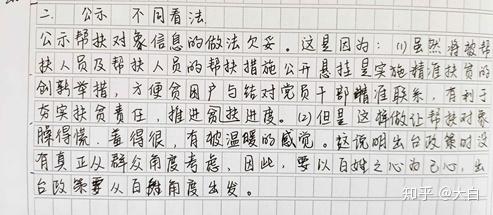 二、公示 不同看法
公示帮扶对象信息的做法欠妥。这是因为：(1)虽然将被帮
扶人员及帮扶人员的帮扶措施公开悬挂是实施精准扶贫的
创新举措，方便贫困户与结对党员干部精准联系，有利于
夯实扶贫责任，推进贫扶进度。(2)但是这样做让帮扶对象
臊得慌、羞得很，有被温暖的感觉。这说明出台政策时没
有真正从群众角度考虑，因此，要以百姓之心为己心，出
台政策要从百姓角度出发。
知乎 @大白